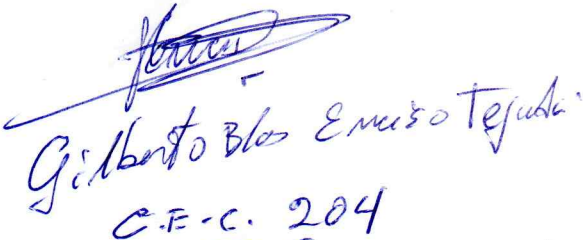 Gilberto Blas Enciso Tejada
C.E.C. 204